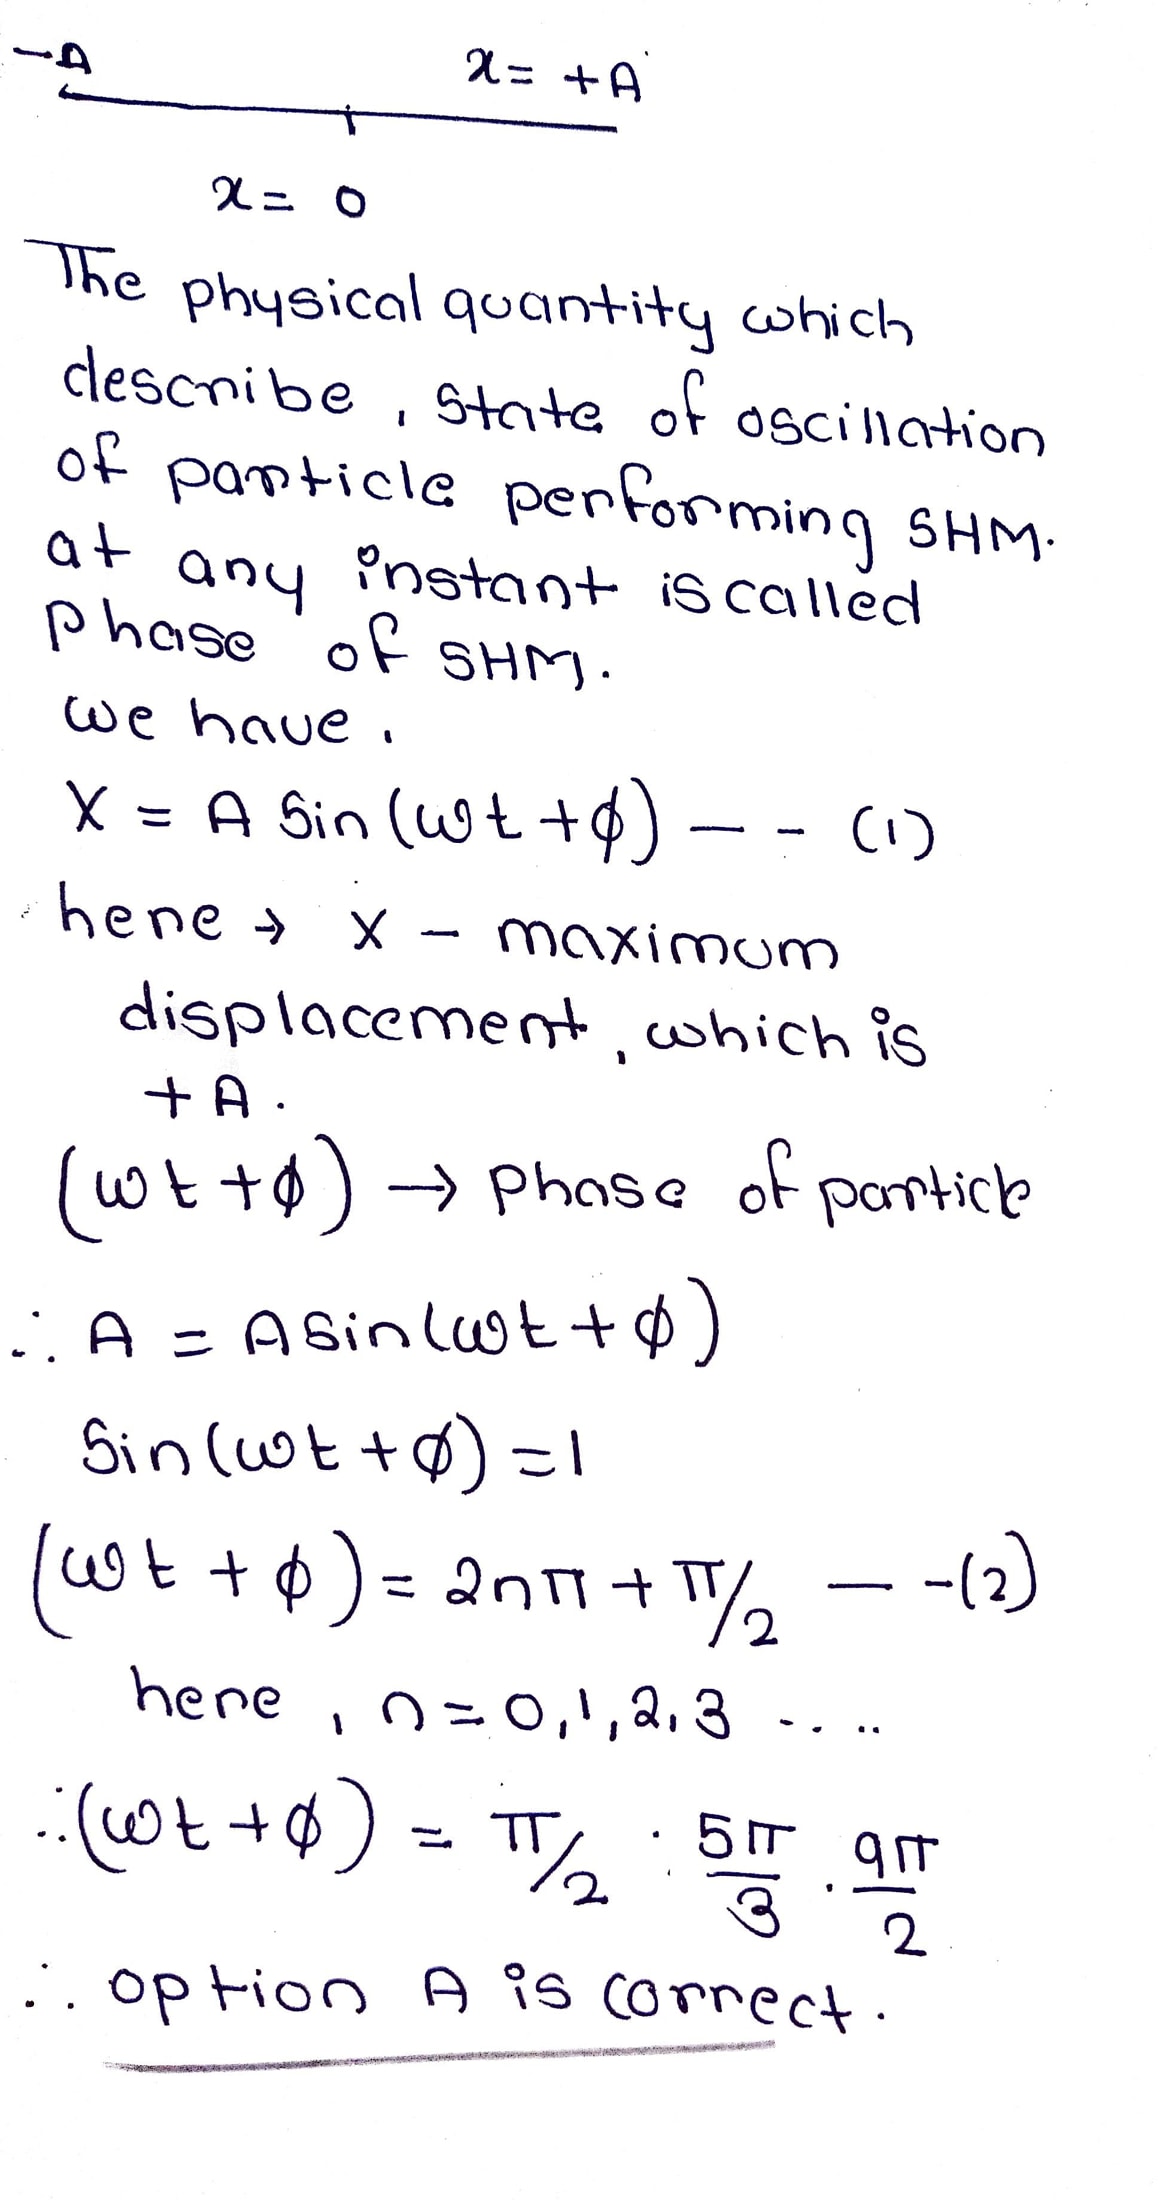 -A
x = +A
x = 0
The physical quantity which
describe, state of oscillation
of particle performing SHM.
at any instant is called
phase of SHM.
we have,
X = A Sin (ωt + φ) - - (1)
here → X - maximum
displacement, which is
+ A.
(ωt + φ) → phase of particle
∴ A = A Sin (ωt + φ)
Sin (ωt + φ) = 1
(ωt + φ) = 2nπ + π/2 - - (2)
here, n = 0, 1, 2, 3 ....
∴ (ωt + φ) = π/2 . 5π/3 . 9π/2
∴ option A is correct.